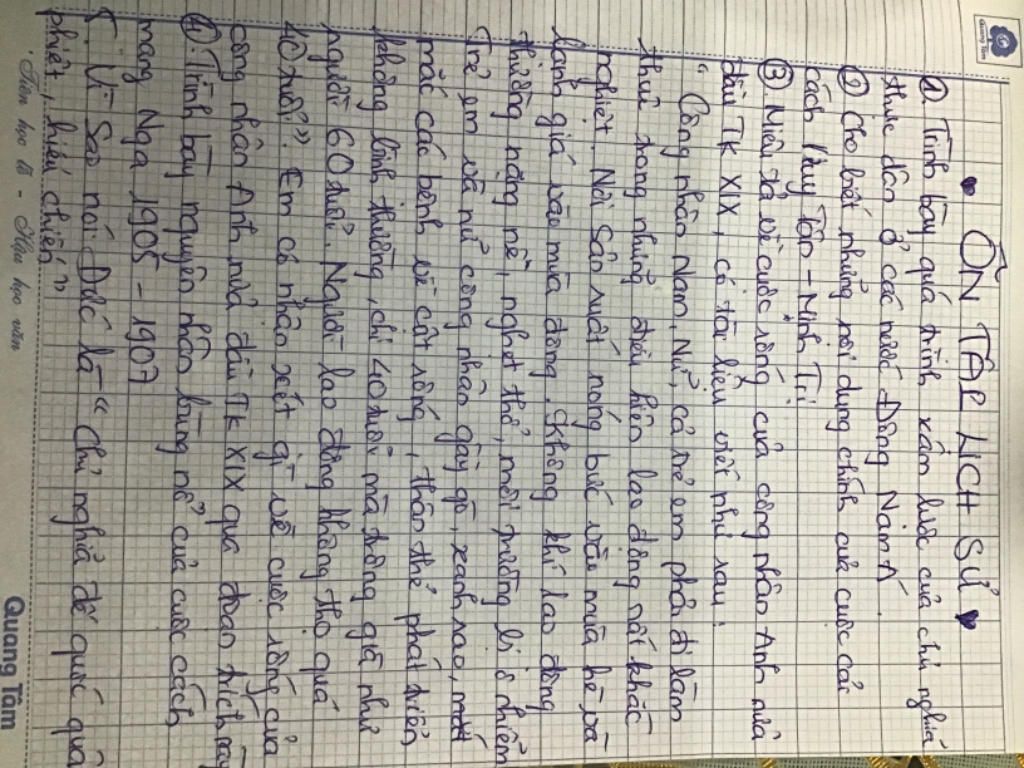 Quang Tâm
♥ ÔN TẬP LỊCH SỬ ♥
① Trình bày quá trình xâm lược của chủ nghĩa
thực dân ở các nước Đông Nam Á.
② Cho biết những nội dung chính của cuộc cải
cách Duy Tân - Minh Trị
③ Miêu tả về cuộc sống của công nhân Anh nửa
đầu TK XIX, có tài liệu viết như sau:
" Công nhân Nam, Nữ, cả trẻ em phải đi làm
thuê trong những điều kiện lao động rất khắc
nghiệt. Nơi sản xuất nóng bức vào mùa hè và
lạnh giá vào mùa đông. Không khí lao động
thường nặng nề, nghẹt thở, môi trường bị ô nhiễm
Trẻ em và nữ công nhân gầy gò, xanh xao,
mắc các bệnh về cột sống, thân thể phát triển
không bình thường, chỉ 40 tuổi mà trông già như
người 60 tuổi. Người lao động không thọ quá
40 tuổi". Em có nhận xét gì về cuộc sống của
công nhân Anh nửa đầu TK XIX qua đoạn trích
④. Trình bày nguyên nhân bùng nổ của cuộc cách
mạng Nga 1905 - 1907
Vì Sao nói Đức là " Chủ nghĩa đế quốc quân
phiệt, hiếu chiến"
Tiên học lễ - Hậu học văn
Quang Tâm